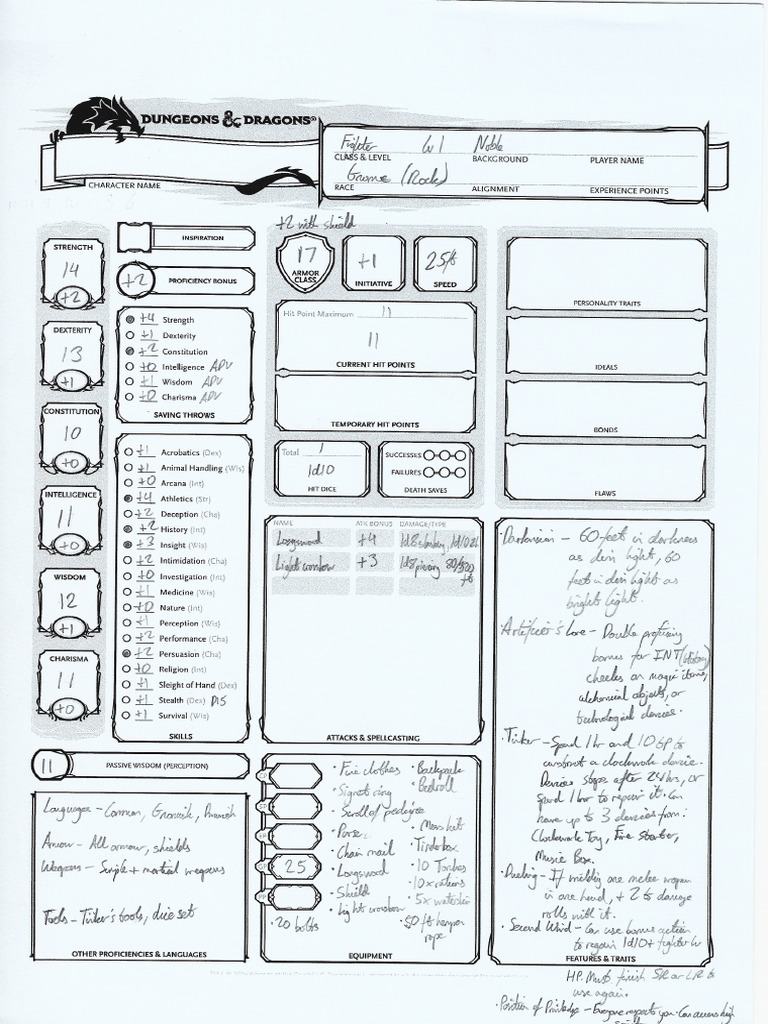 DUNGEONS & DRAGONS®
CHARACTER NAME
Fighter lvl 1 Noble
CLASS & LEVEL BACKGROUND PLAYER NAME
Gnome (Rock)
RACE ALIGNMENT EXPERIENCE POINTS
STRENGTH
14
+2
DEXTERITY
13
+1
CONSTITUTION
10
+0
INTELLIGENCE
11
+0
WISDOM
12
+1
CHARISMA
11
+0
INSPIRATION
+2 PROFICIENCY BONUS
+4 Strength
+1 Dexterity
+2 Constitution
+0 Intelligence ADV
+1 Wisdom ADV
+0 Charisma ADV
SAVING THROWS
+1 Acrobatics (Dex)
+1 Animal Handling (Wis)
+0 Arcana (Int)
+4 Athletics (Str)
+2 Deception (Cha)
+2 History (Int)
+3 Insight (Wis)
+2 Intimidation (Cha)
+0 Investigation (Int)
+1 Medicine (Wis)
+0 Nature (Int)
+1 Perception (Wis)
+2 Performance (Cha)
+2 Persuasion (Cha)
+0 Religion (Int)
+1 Sleight of Hand (Dex)
+1 Stealth (Dex) DIS
+1 Survival (Wis)
SKILLS
11 PASSIVE WISDOM (PERCEPTION)
Languages - Common, Gnomish, Dwarvish
Armour - All armour, shields
Weapons - Simple + martial weapons
Tools - Tinker's tools, dice set
OTHER PROFICIENCIES & LANGUAGES
+2 with shield
17
ARMOR CLASS
+1
INITIATIVE
25ft
SPEED
Hit Point Maximum 11
11
CURRENT HIT POINTS
TEMPORARY HIT POINTS
Total 1
1d10
HIT DICE
SUCCESSES
FAILURES
DEATH SAVES
NAME ATK BONUS DAMAGE/TYPE
Longsword +4 1d8 slashing, 1d10 2h
Light crossbow +3 1d8 piercing 80/320
ft
ATTACKS & SPELLCASTING
CP
SP
EP
GP 25
PP
· 20 bolts
· Fine clothes
· Signet ring
· Scroll of pedigree
· Purse
· Chain mail
· Longsword
· Shield
· Light crossbow
· Backpack
· Bedroll
· Mess kit
· Tinderbox
· 10 Torches
· 10x rations
· 5x waterskin
· 50 ft hempen
rope
EQUIPMENT
PERSONALITY TRAITS
IDEALS
BONDS
FLAWS
· Darkvision - 60 feet in darkness
as dim light, 60
feet in dim light as
bright light.
· Artificer's Lore - Double proficiency
bonus for INT (history)
checks on magic items,
alchemical objects, or
technological devices.
· Tinker - Spend 1 hr and 10 GP to
construct a clockwork device.
Devices stops after 24hrs, or
spend 1 hr to repair it. Can
have up to 3 devices from:
Clockwork Toy, Fire Starter,
Music Box.
· Dueling - If wielding one melee weapon
in one hand, +2 to damage
rolls with it.
· Second Wind - Can use bonus action
to regain 1d10 + fighter lvl
FEATURES & TRAITS
HP. Must finish SR or LR to
use again.
· Position of Privilege - Everyone respects you. Can access high